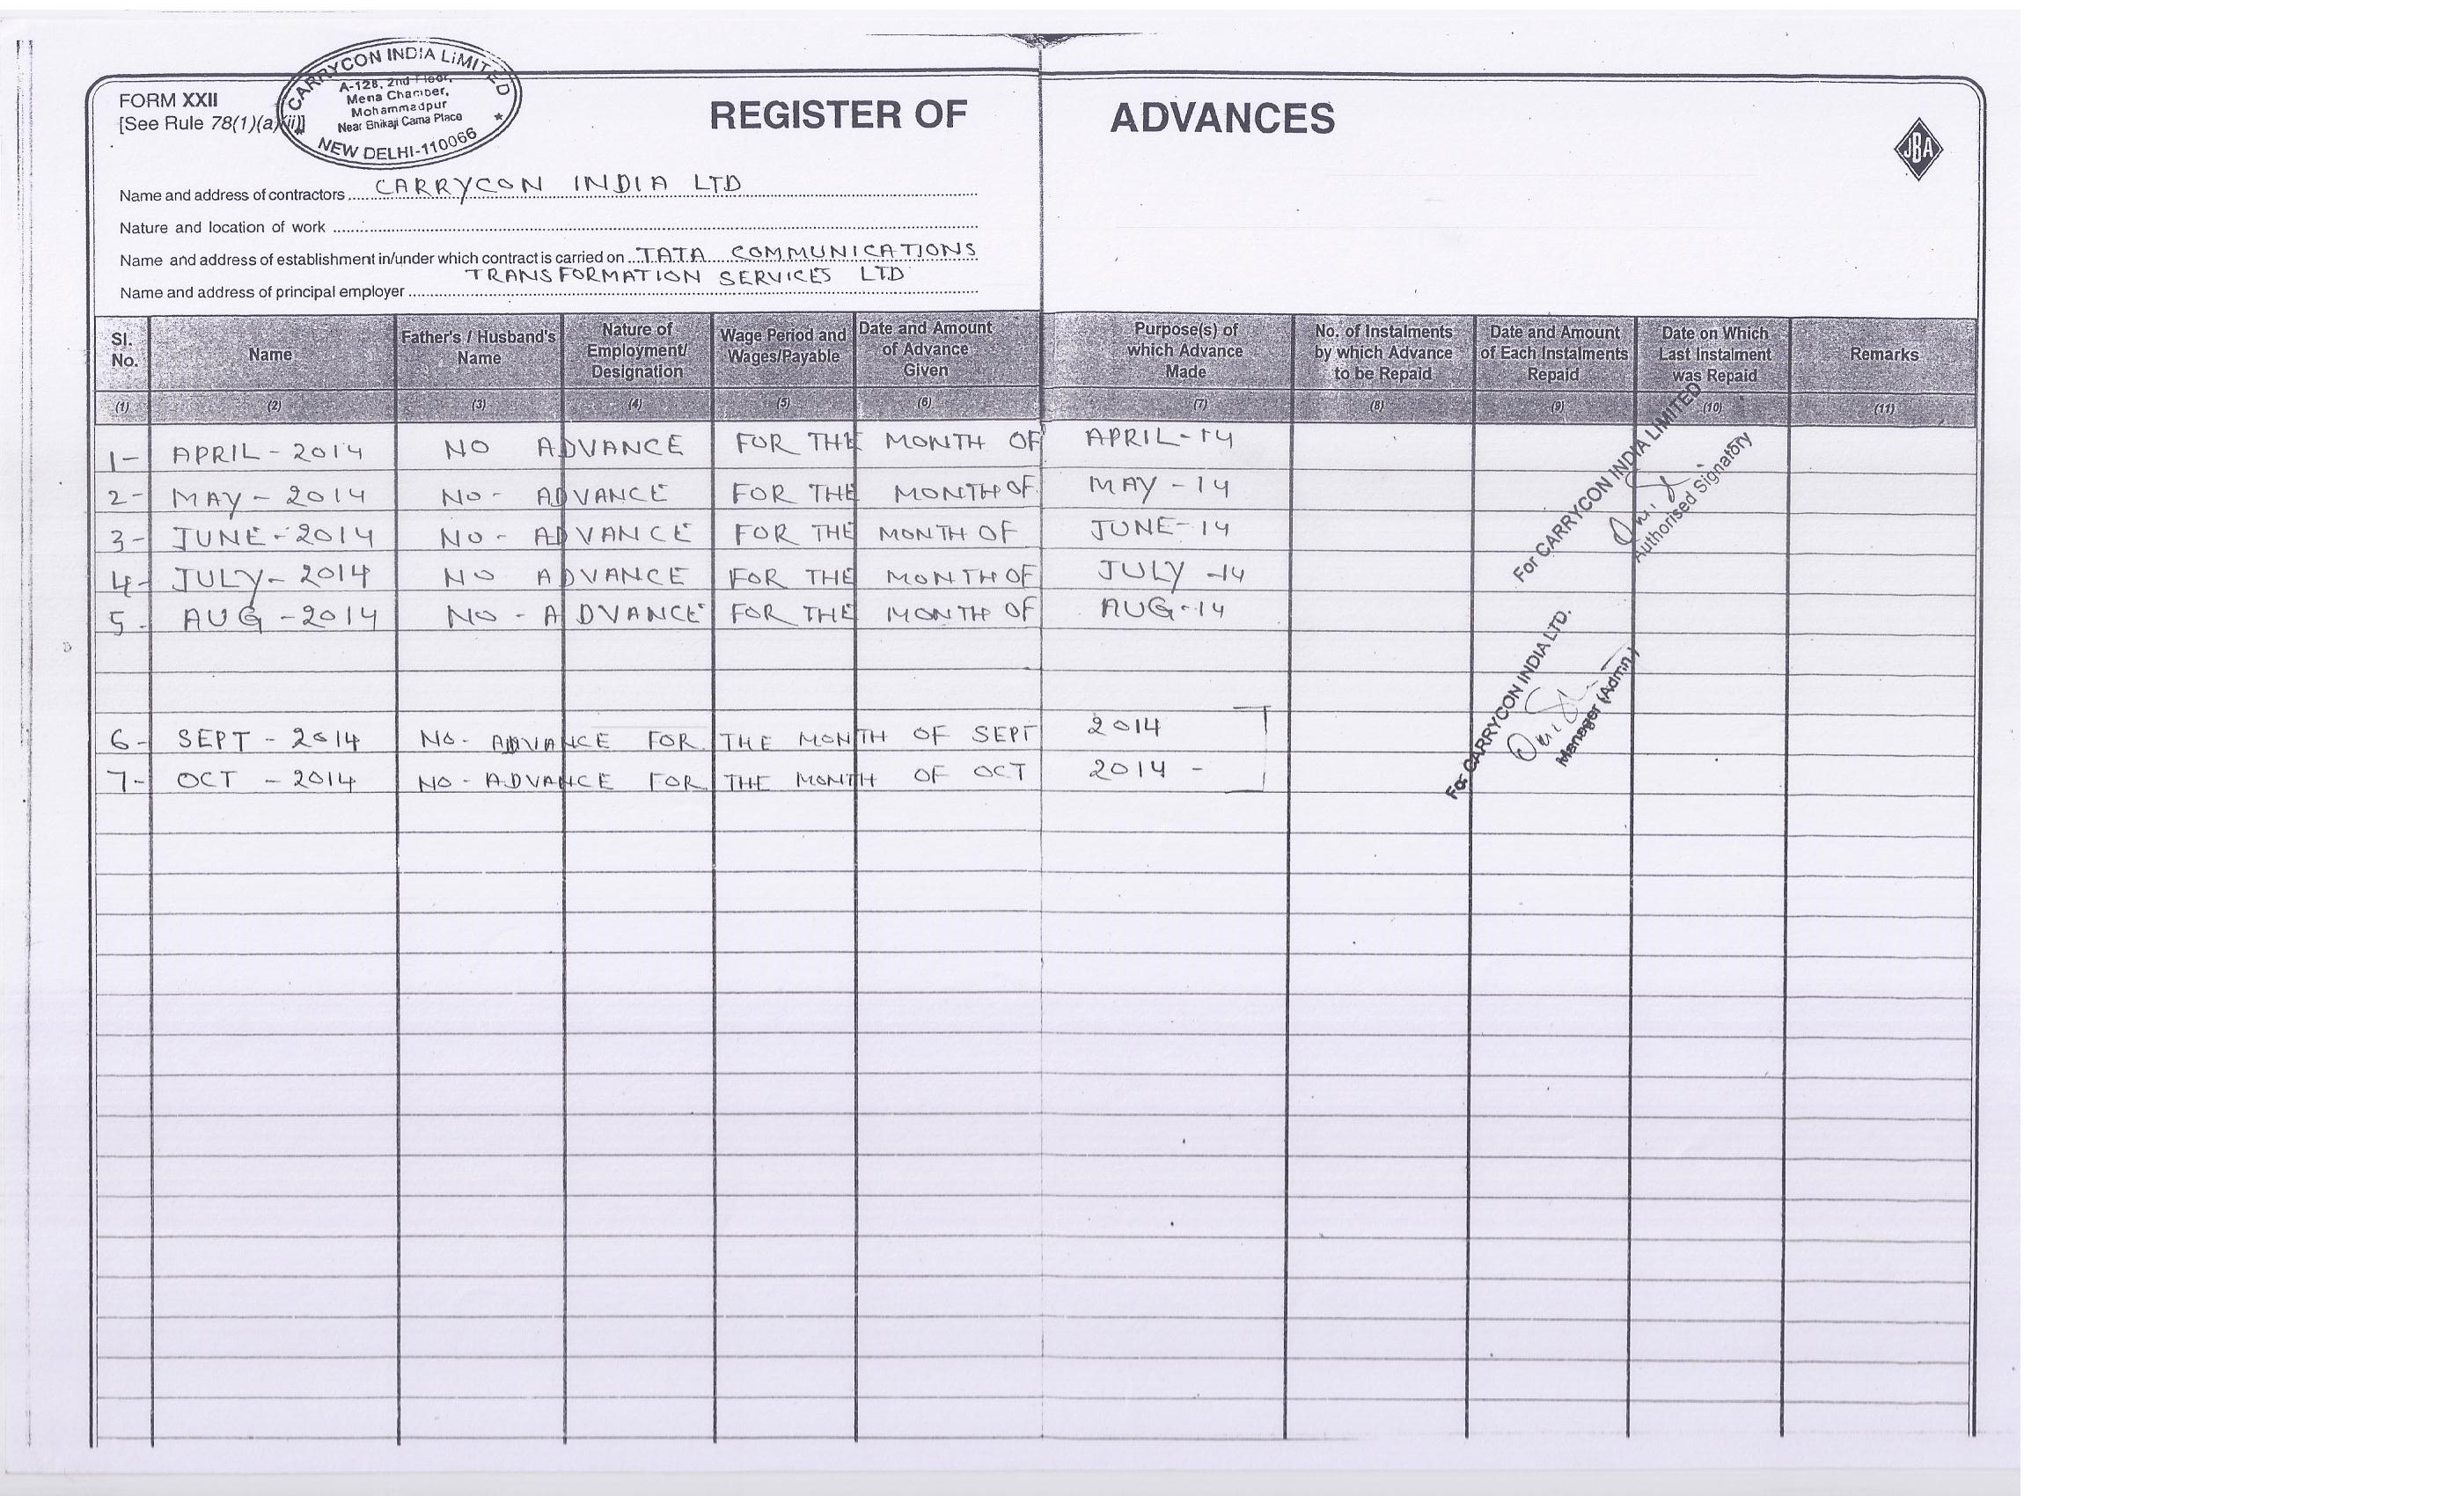 CARRYCON INDIA LiMITED
A-128, 2nd Floor,
Mena Chamber,
Mohammadpur
Near Bhikaji Cama Place
NEW DELHI-110066 ★
FORM XXII
[See Rule 78(1)(a)(ii)]
REGISTER OF ADVANCES
JBA
Name and address of contractors CARRYCON INDIA LTD
Nature and location of work
Name and address of establishment in/under which contract is carried on TATA COMMUNICATIONS
TRANSFORMATION SERVICES LTD
Name and address of principal employer
Sl. No. Name Father's / Husband's Name Nature of Employment/ Designation Wage Period and Wages/Payable Date and Amount of Advance Given Purpose(s) of which Advance Made No. of Instalments by which Advance to be Repaid Date and Amount of Each Instalments Repaid Date on Which Last Instalment was Repaid Remarks
(1) (2) (3) (4) (5) (6) (7) (8) (9) (10) (11)
1- APRIL - 2014 NO ADVANCE FOR THE MONTH OF APRIL-14
2- MAY - 2014 NO - ADVANCE FOR THE MONTH OF MAY - 14
3- JUNE - 2014 NO - ADVANCE FOR THE MONTH OF JUNE-14
4- JULY - 2014 NO ADVANCE FOR THE MONTH OF JULY -14
5- AUG - 2014 NO - ADVANCE FOR THE MONTH OF AUG-14
For CARRYCON INDIA LIMITED
Authorised Signatory
6- SEPT - 2014 NO - ADVANCE FOR THE MONTH OF SEPT 2014
7- OCT - 2014 NO - ADVANCE FOR THE MONTH OF OCT 2014 -
For CARRYCON INDIA LTD.
Manager (Admn.)